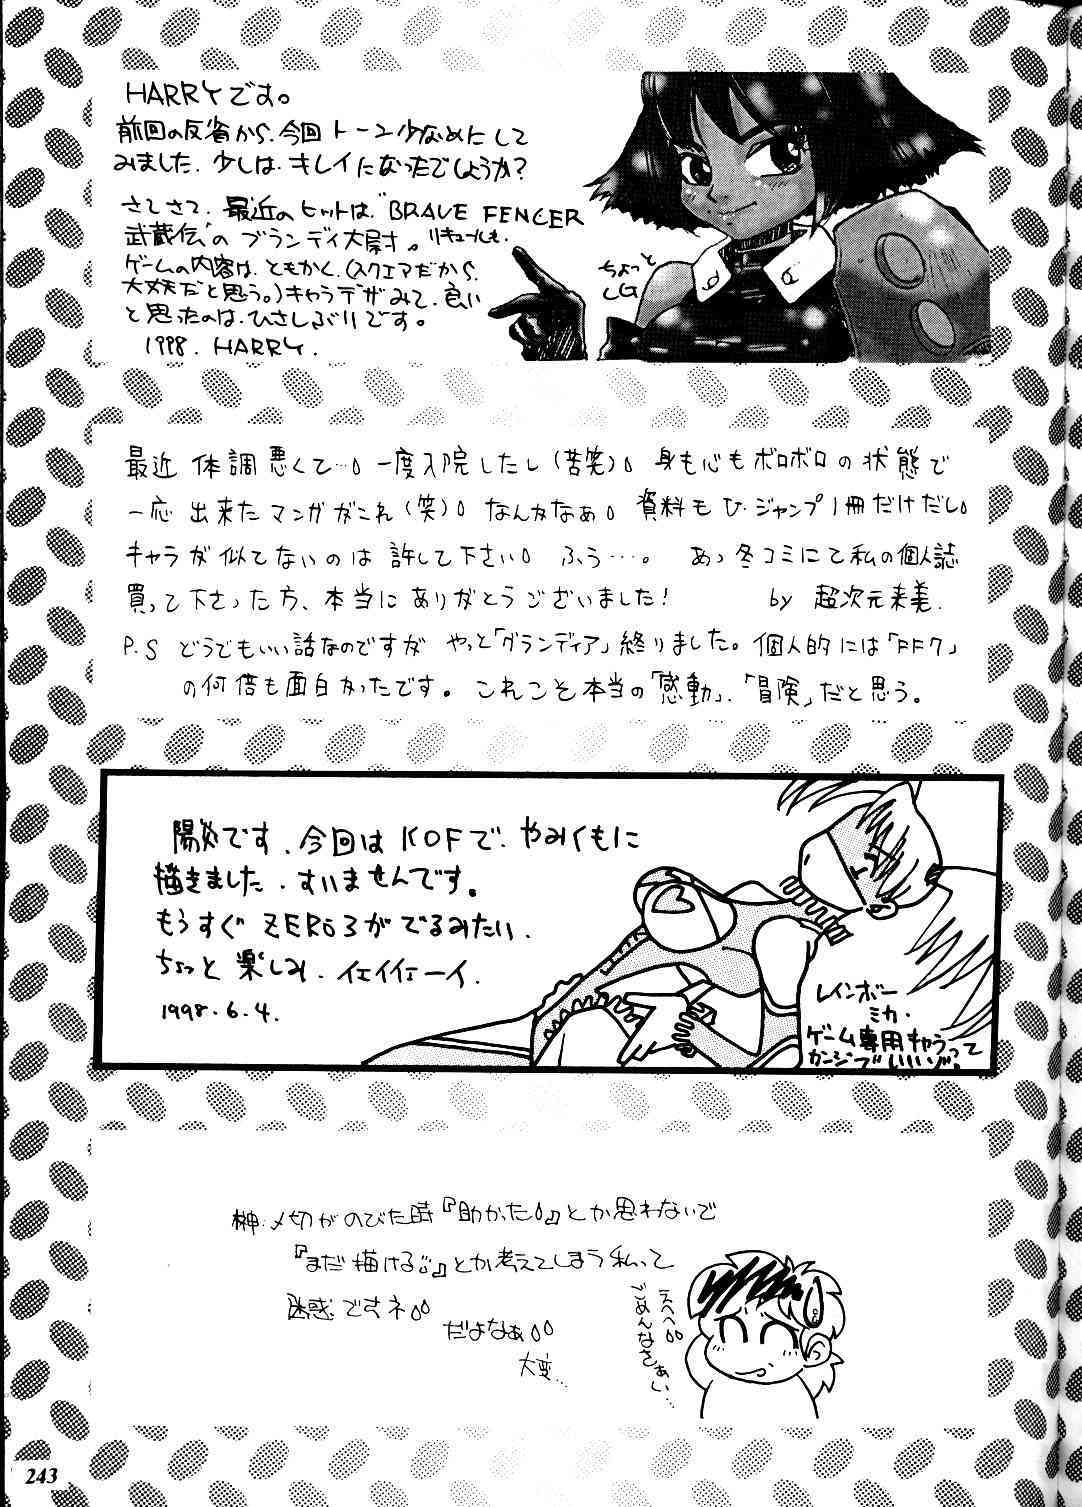 HARRYです。
前回の反省から、今回トーン少なめにして
みました、少しは、キレイになったでしょうか?
さてさて、最近のヒットは、"BRAVE FENCER
武蔵伝"の ブランディ大尉。リキュールも、
ゲームの内容は、ともかく、(スクエアだから、
大丈夫だと思う。)キャラデザみて、良い
と思ったのは、ひさしぶりです。
1998. HARRY.
ちょっと
CG
最近 体調 悪くて…。一度入院したし(苦笑)。身も心もボロボロの状態で
一応 出来たマンガがこれ(笑)。なんかなぁ。資料もVジャンプ1冊だけだし。
キャラが似てないのは 許して下さい。ふう…。あっ冬コミにて私の個人誌
買って下さった方、本当にありがとうございました! by 超次元来美.
P.S どうでもいい話なのですが やっと「グランディア」終りました。個人的には「FF7」
の何倍も面白かったです。これこそ本当の「感動」、「冒険」だと思う。
陽炎です、今回はKOFで、やみくもに
描きました、すいませんです。
もうすぐ ZERO3がでるみたい、
ちょっと 楽しみ、イェイイェーイ.
1998.6.4.
レインボー
ミカ・
ゲーム専用キャラって
カンジでいいゾ。
榊・〆切がのびた時『助かた。』とか思わないで
『まだ描ける!!』とか考えてしまう私って
迷惑ですネ。
だよなぁ。
大変…
えへへ。
ごめんなさぁい…
243